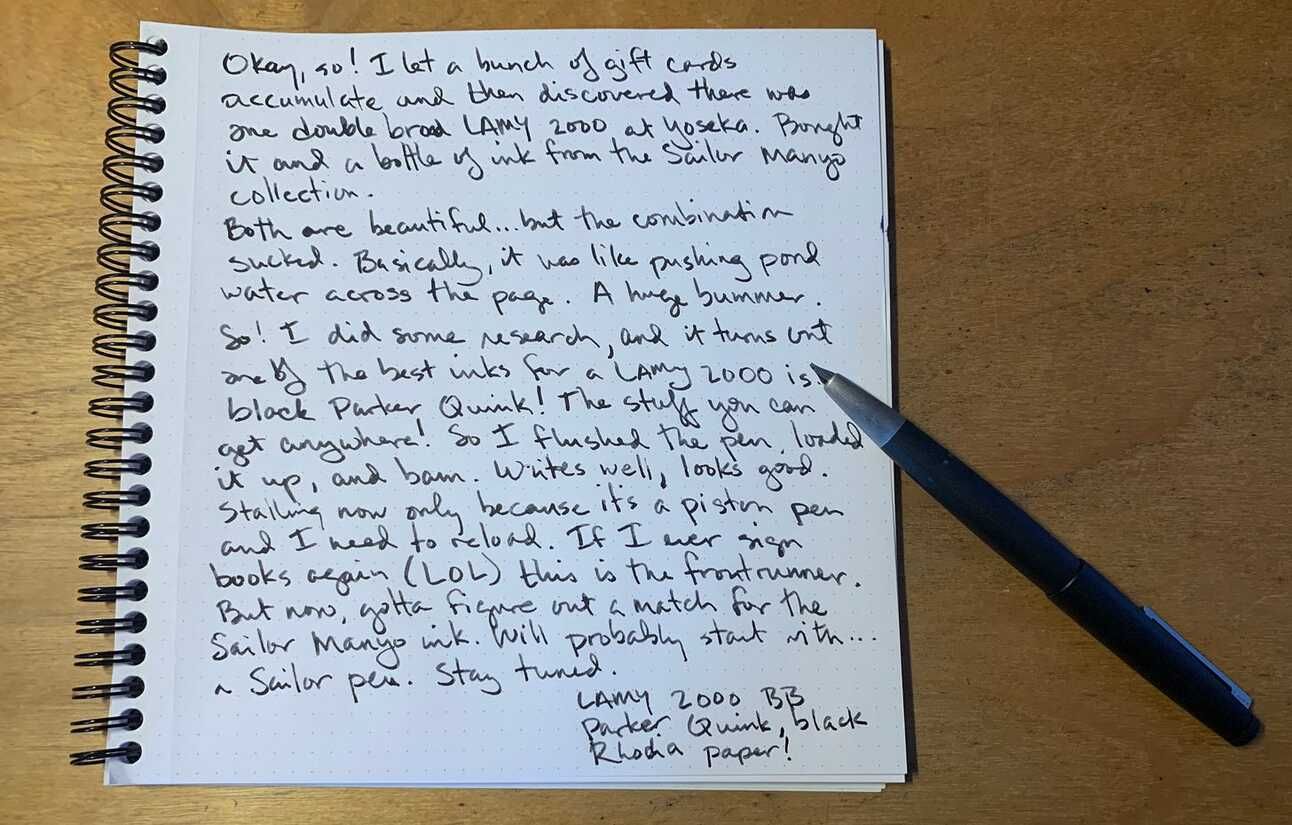 Okay, so! I let a bunch of gift cards
accumulate and then discovered there was
one double broad LAMY 2000 at Yoseka. Bought
it and a bottle of ink from the Sailor Manyo
collection.
Both are beautiful...but the combination
sucked. Basically, it was like pushing pond
water across the page. A huge bummer.
So! I did some research, and it turns out
one of the best inks for a LAMY 2000 is...
black Parker Quink! The stuff you can
get anywhere! So I flushed the pen, loaded
it up, and bam. Writes well, looks good.
Stalling now only because it's a piston pen
and I need to reload. If I ever sign
books again (LOL) this is the frontrunner.
But now, gotta figure out a match for the
Sailor Manyo ink. Will probably start with...
a Sailor pen. Stay tuned.
LAMY 2000 BB
Parker Quink, black
Rhodia paper!